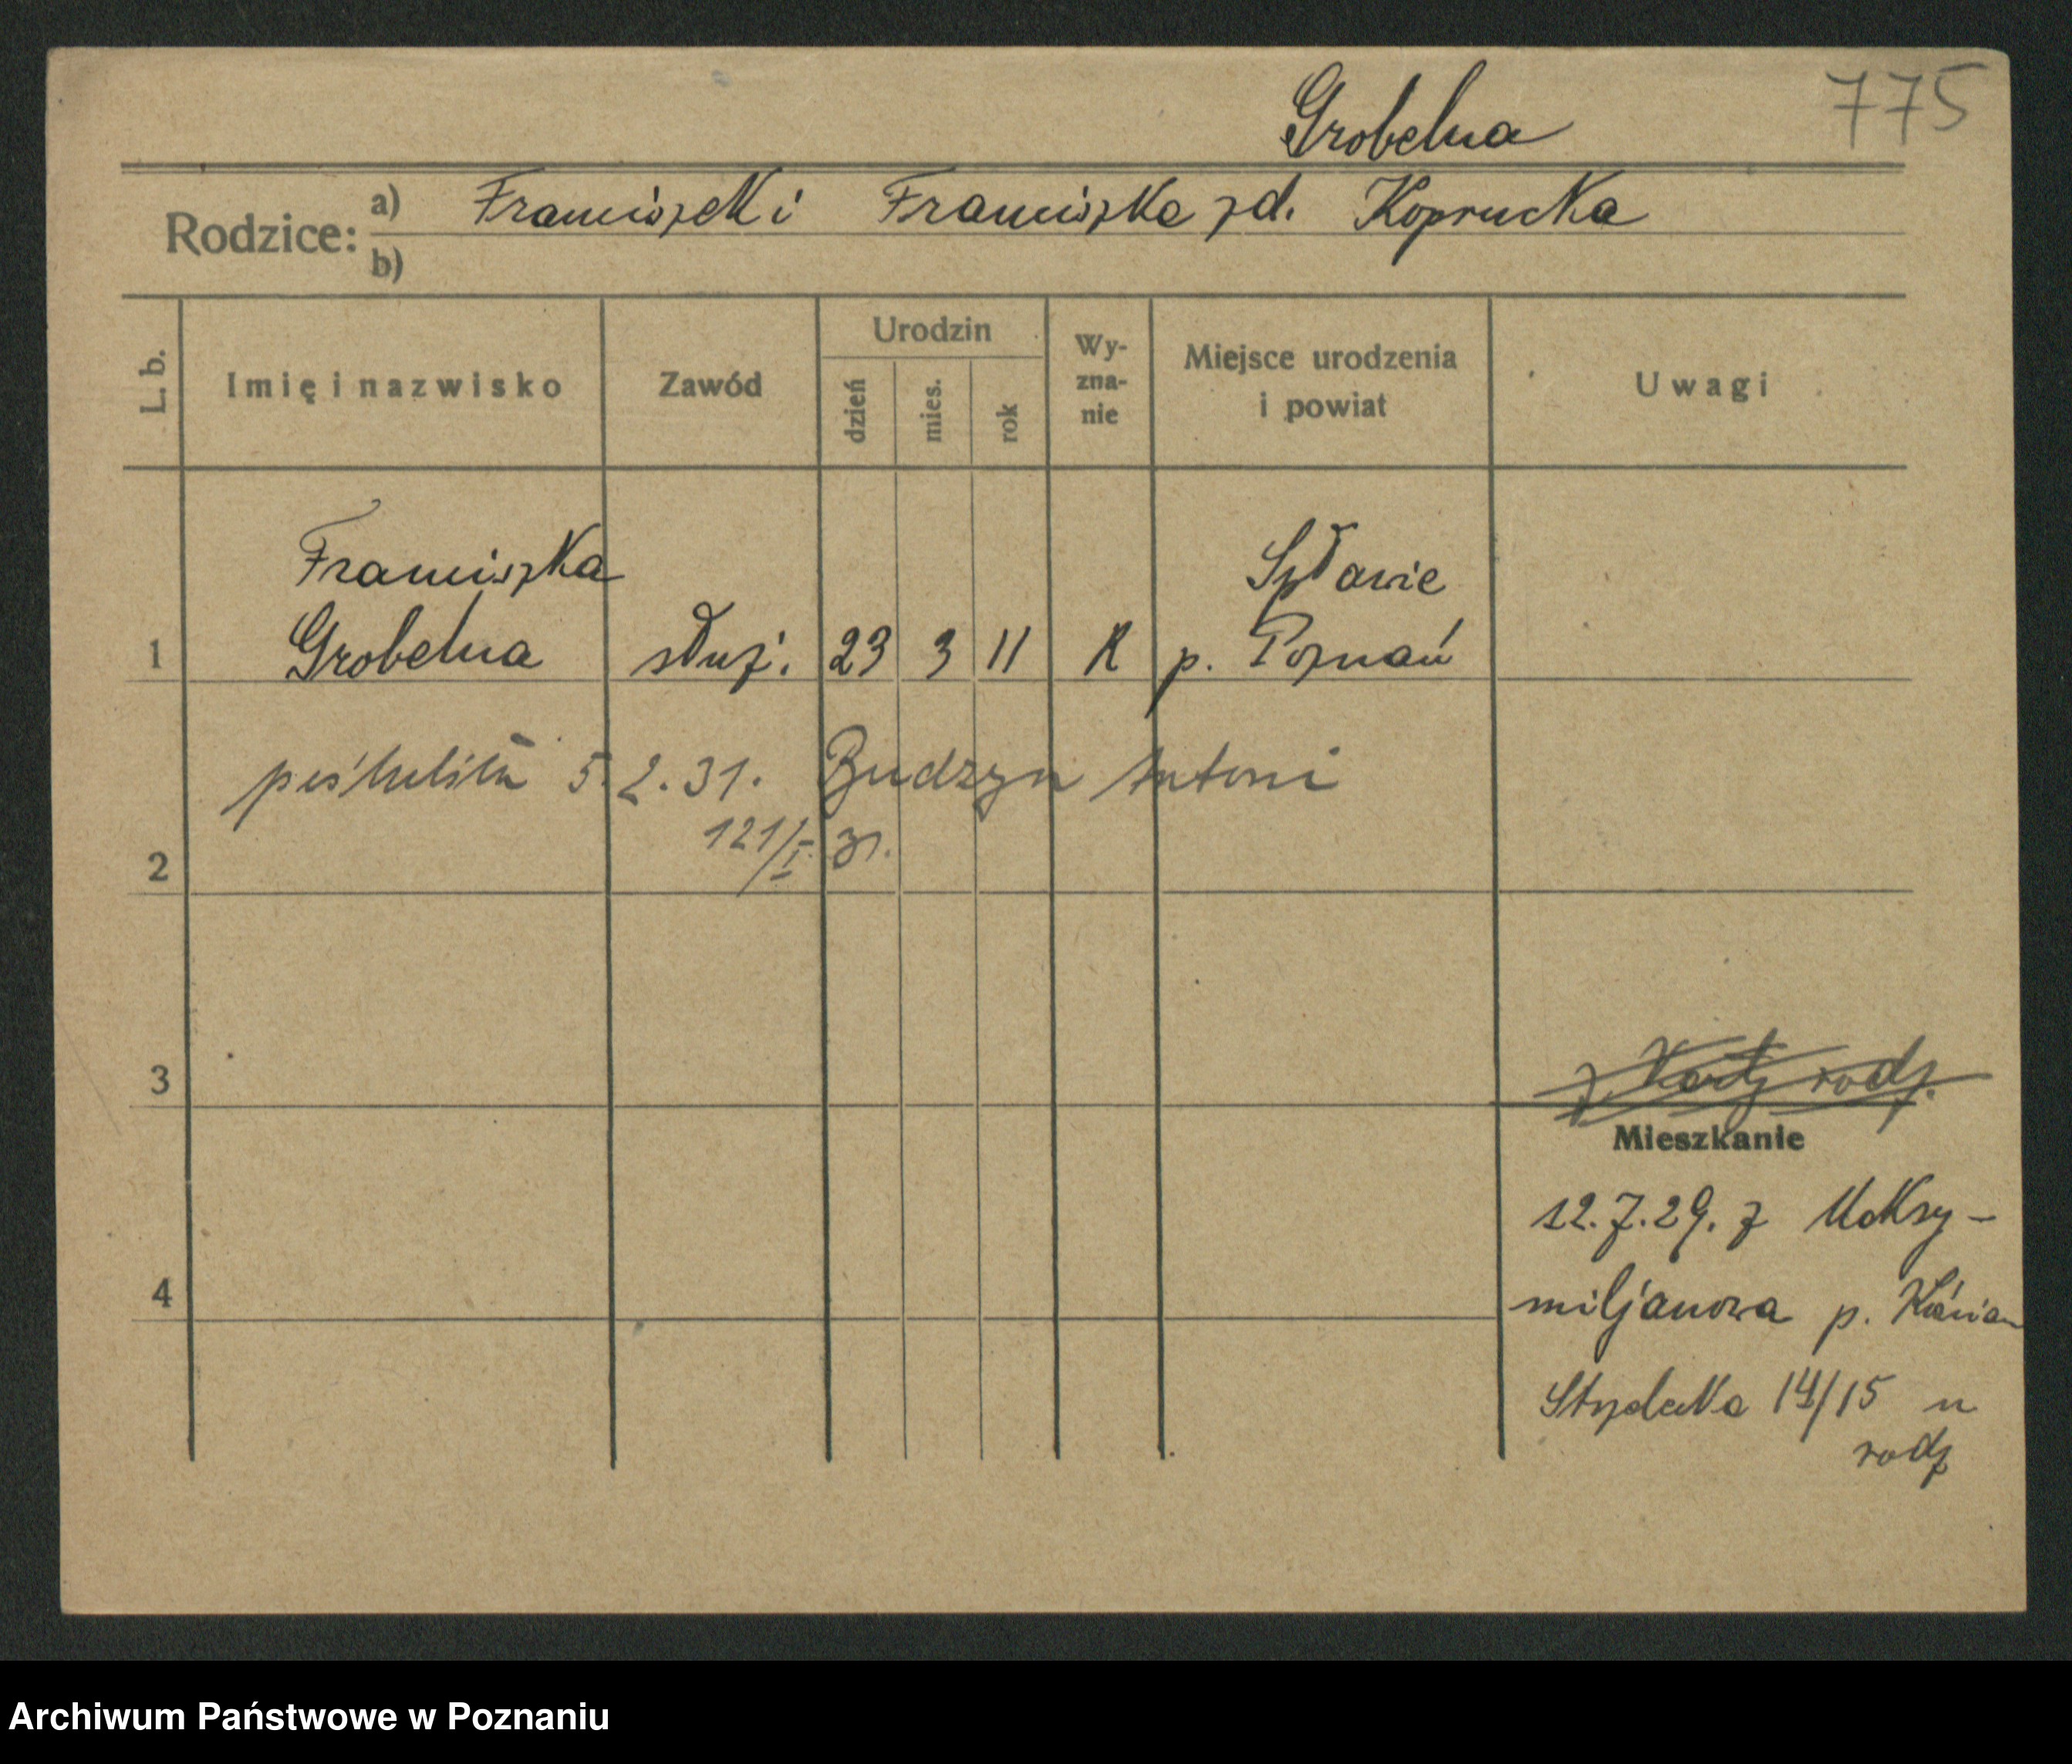 Grobelna
775
Rodzice: a) Franciszek i Franciszka zd. Koprucka
b)
L. b. Imię i nazwisko Zawód Urodzin dzień mies. rok Wyznanie Miejsce urodzenia i powiat Uwagi
Franciszka Szławie
1 Grobelna służ. 23 3 11 R p. Poznań
poślubiła 5.2.31. Budzyn Antoni
121/I. 31.
2
3
z Karty rodz.
Mieszkanie
12.7.29. z Maksy-
4 miljanowa p. Kościan
14/15 u
rodz
Archiwum Państwowe w Poznaniu